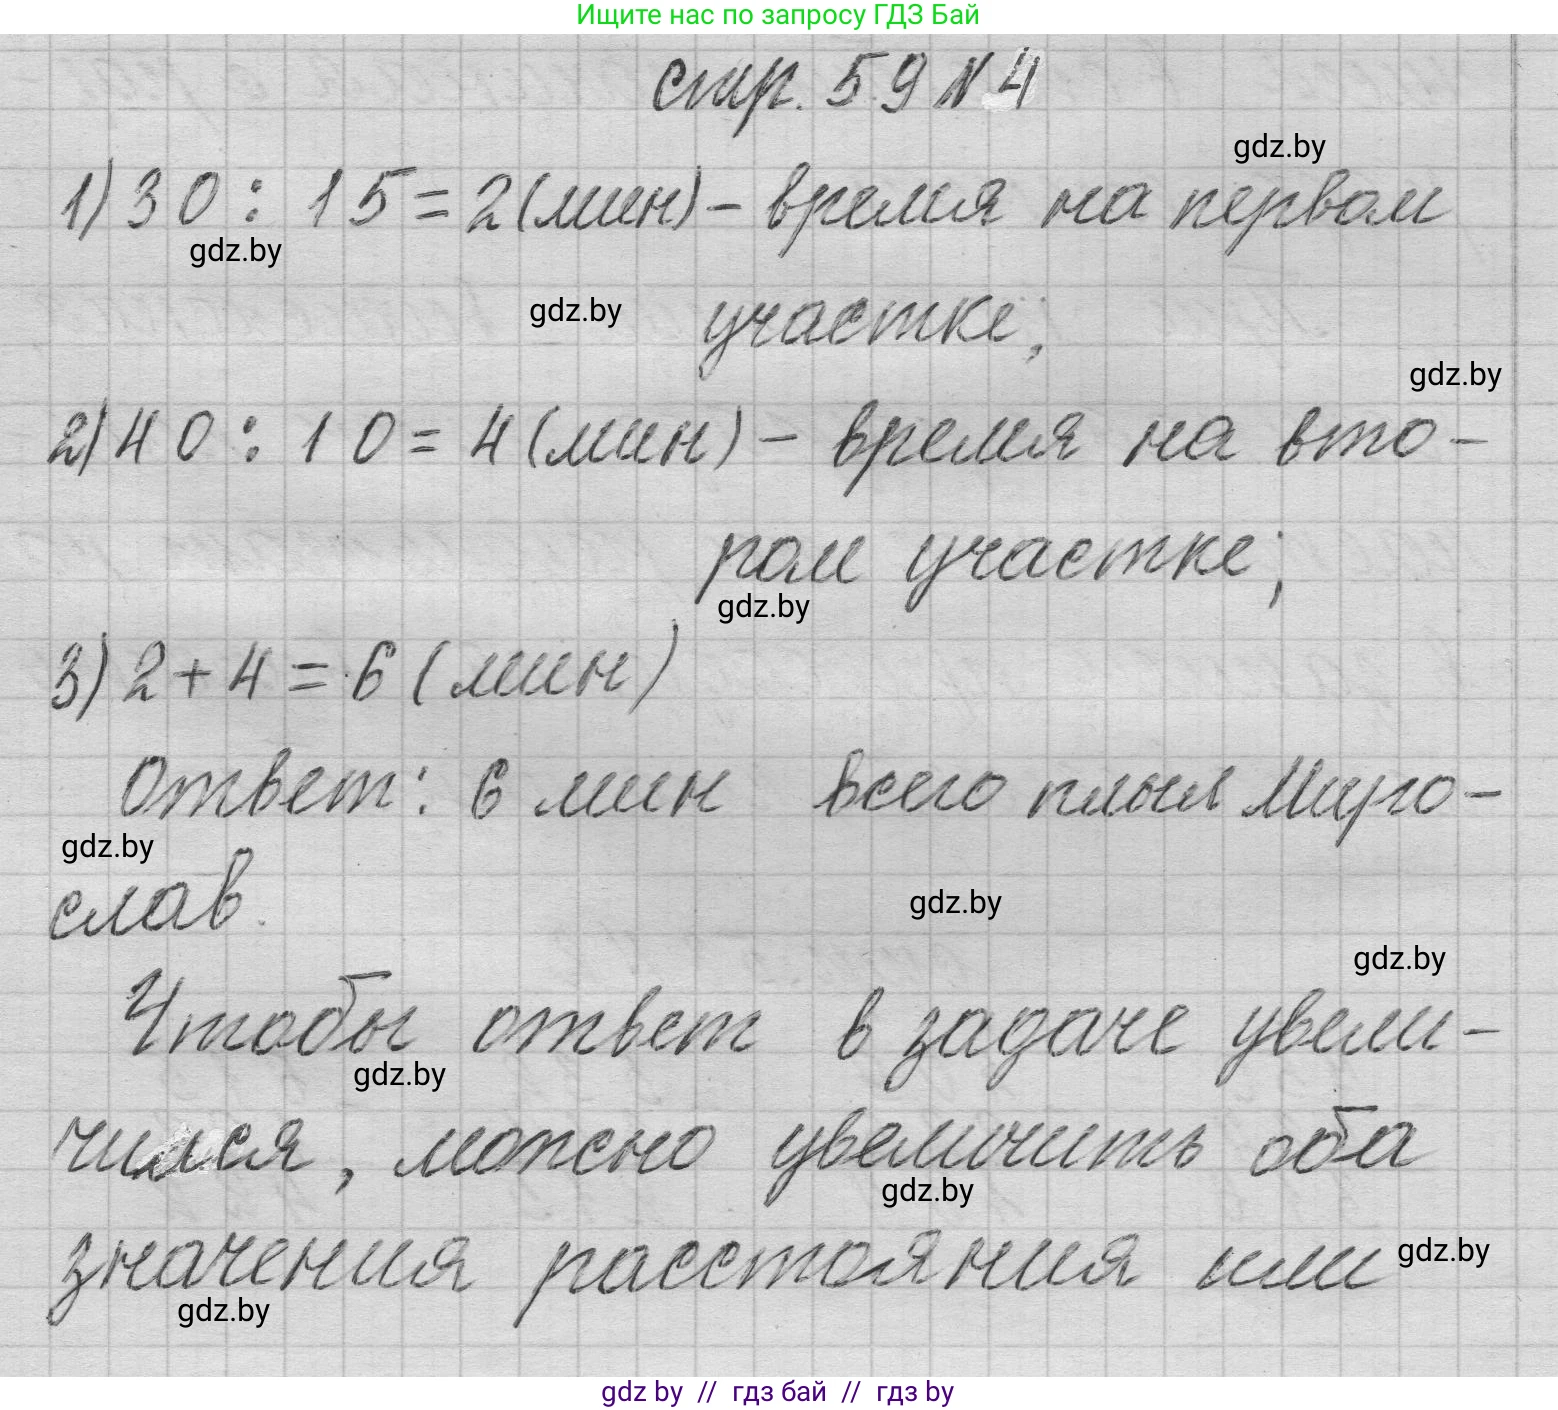 Ищите нас по запросу ГДЗ Бай
стр. 59 № 4
gdz.by
1) 30 : 15 = 2 (мин) - время на первом
gdz.by
gdz.by
участке;
gdz.by
2) 40 : 10 = 4 (мин) - время на вто-
ром участке;
gdz.by
3) 2 + 4 = 6 (мин)
Ответ: 6 мин всего плыл Миро-
gdz.by
слав.
gdz.by
gdz.by
Чтобы ответ в задаче увели-
gdz.by
чился, можно увеличить оба
gdz.by
значения расстояния или
gdz.by
gdz.by
gdz by // гдз бай // гдз by